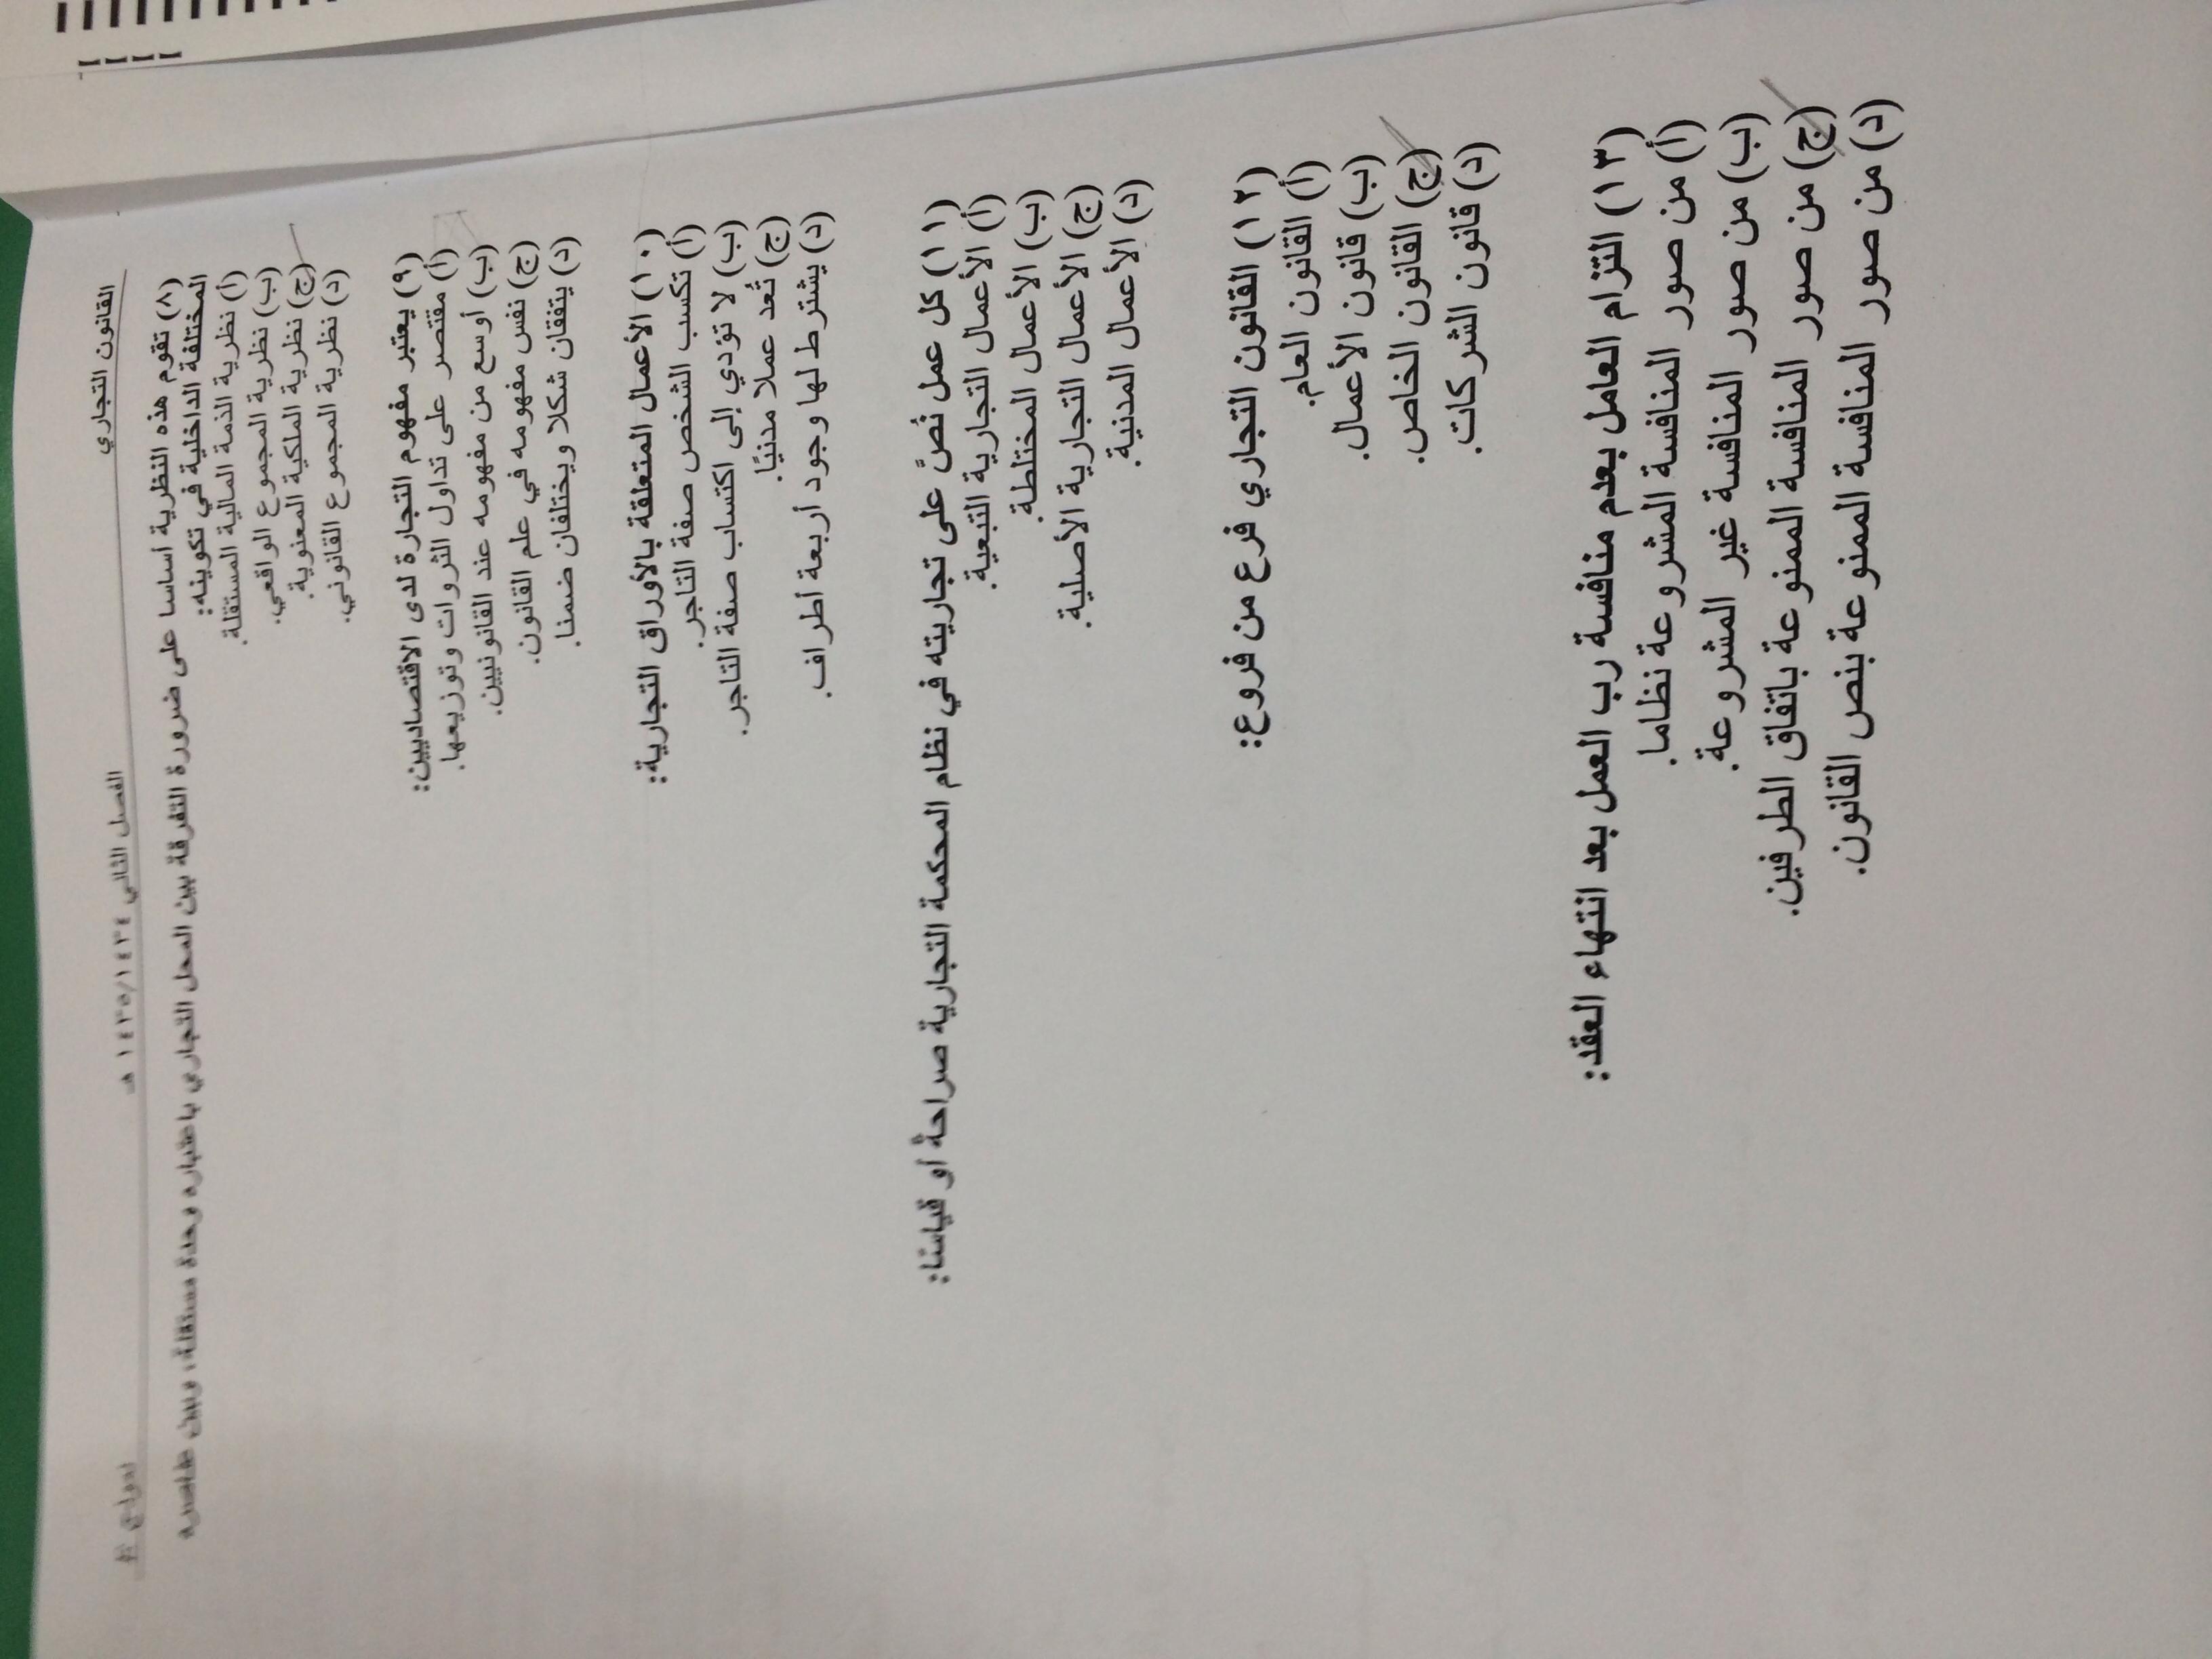 القانون التجاري الفصل الثاني ١٤٣٤/١٤٣٥ هـ
(٨) تقوم هذه النظرية أساسا على ضرورة التفرقة بين المحل التجاري باعتباره وحدة مستقلة، وبين عناصره
المختلفة الداخلية في تكوينه:
(أ) نظرية الذمة المالية المستقلة.
(ب) نظرية المجموع الواقعي.
(ج) نظرية الملكية المعنوية.
(د) نظرية المجموع القانوني.
(٩) يعتبر مفهوم التجارة لدى الاقتصاديين:
(أ) مقتصر على تداول الثروات وتوزيعها.
(ب) أوسع من مفهومه عند القانونيين.
(ج) نفس مفهومه في علم القانون.
(د) يتفقان شكلا ويختلفان ضمنا.
(١٠) الأعمال المتعلقة بالأوراق التجارية:
(أ) تكسب الشخص صفة التاجر.
(ب) لا تؤدي إلى اكتساب صفة التاجر.
(ج) تُعد عملا مدنيًا.
(د) يشترط لها وجود أربعة أطراف.
(١١) كل عمل نُصَّ على تجاريته في نظام المحكمة التجارية صراحةً أو قياسًا:
(أ) الأعمال التجارية التبعية.
(ب) الأعمال المختلطة.
(ج) الأعمال التجارية الأصلية.
(د) الأعمال المدنية.
(١٢) القانون التجاري فرع من فروع:
(أ) القانون العام.
(ب) قانون الأعمال.
(ج) القانون الخاص.
(د) قانون الشركات.
(١٣) التزام العامل بعدم منافسة رب العمل بعد انتهاء العقد:
(أ) من صور المنافسة المشروعة نظاما.
(ب) من صور المنافسة غير المشروعة.
(ج) من صور المنافسة الممنوعة باتفاق الطرفين.
(د) من صور المنافسة الممنوعة بنص القانون.